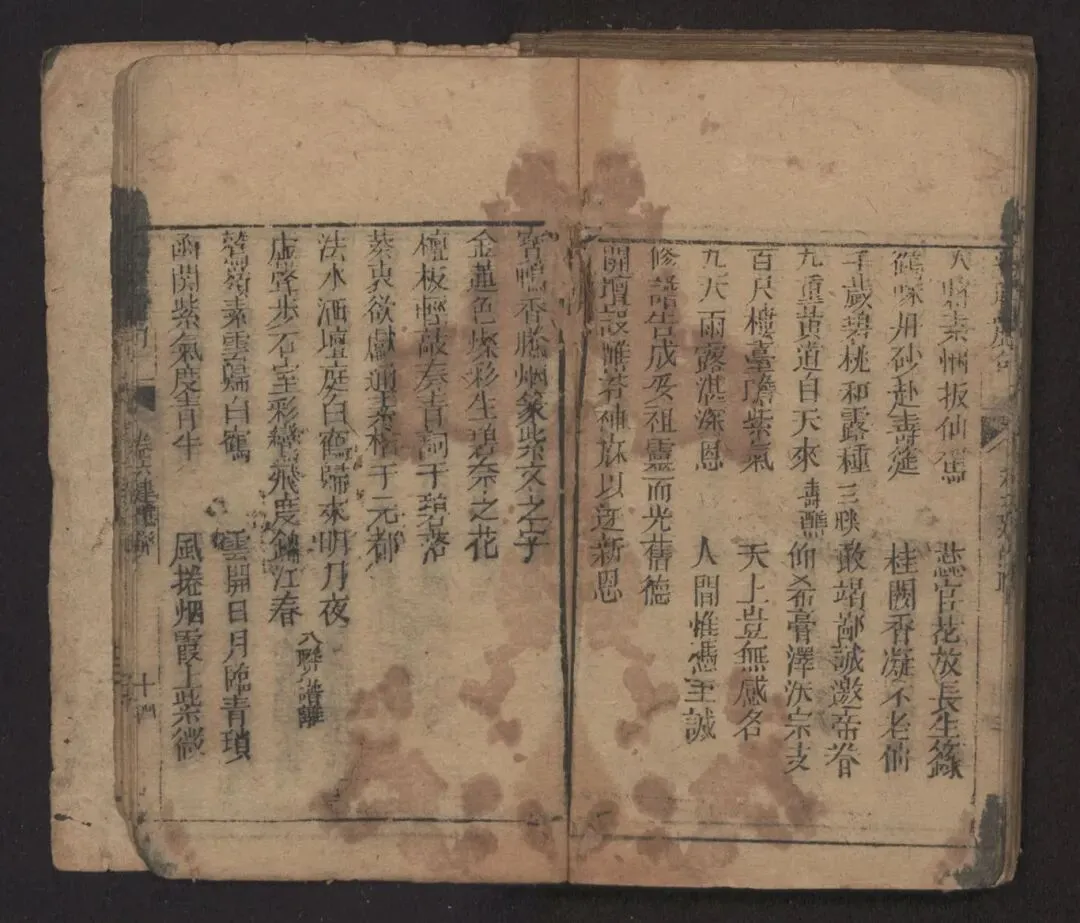 素烟扳仙馬 蕊宮花放長生籙
鶴啄丹砂赴壽筵 桂闕香凝不老仙
千歲碧桃和露種 三联 敢竭鄙誠邀帝眷
九重黃道自天來 壽醮 仰希膏澤沃宗支
百尺樓臺瞻紫氣 天上豈無感名
九天雨露湛深恩 人間惟憑至誠
修誥告成妥祖靈而光舊德
開壇設荅神庥以迓新恩
寶鴨香騰烟篆紫文之字
金蓮色燦彩生碧奈之花
檀板輕敲奏青詞于碧落
葵衷欲獻通素悃于元都
法水洒壇庭白鶴歸來明月夜
虛聲步石室彩鸞飛度錦江春 八聯譜醮
素雲翩白鶴 雲開日月臨青瑣
函開紫氣度青牛 風捲烟霞上紫微
卷六建醮 十四